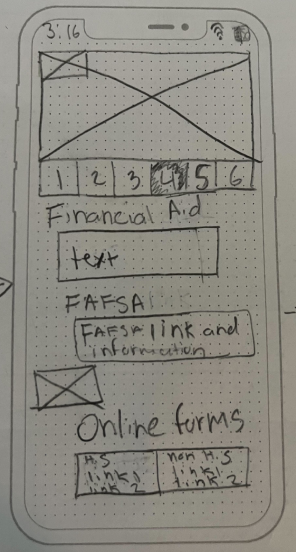 3:16
1 2 3 4 5 6
Financial Aid
text
FAFSA
FAFSA link and
information
Online forms
H.S non H.S
link 1 link 1
link 2 link 2